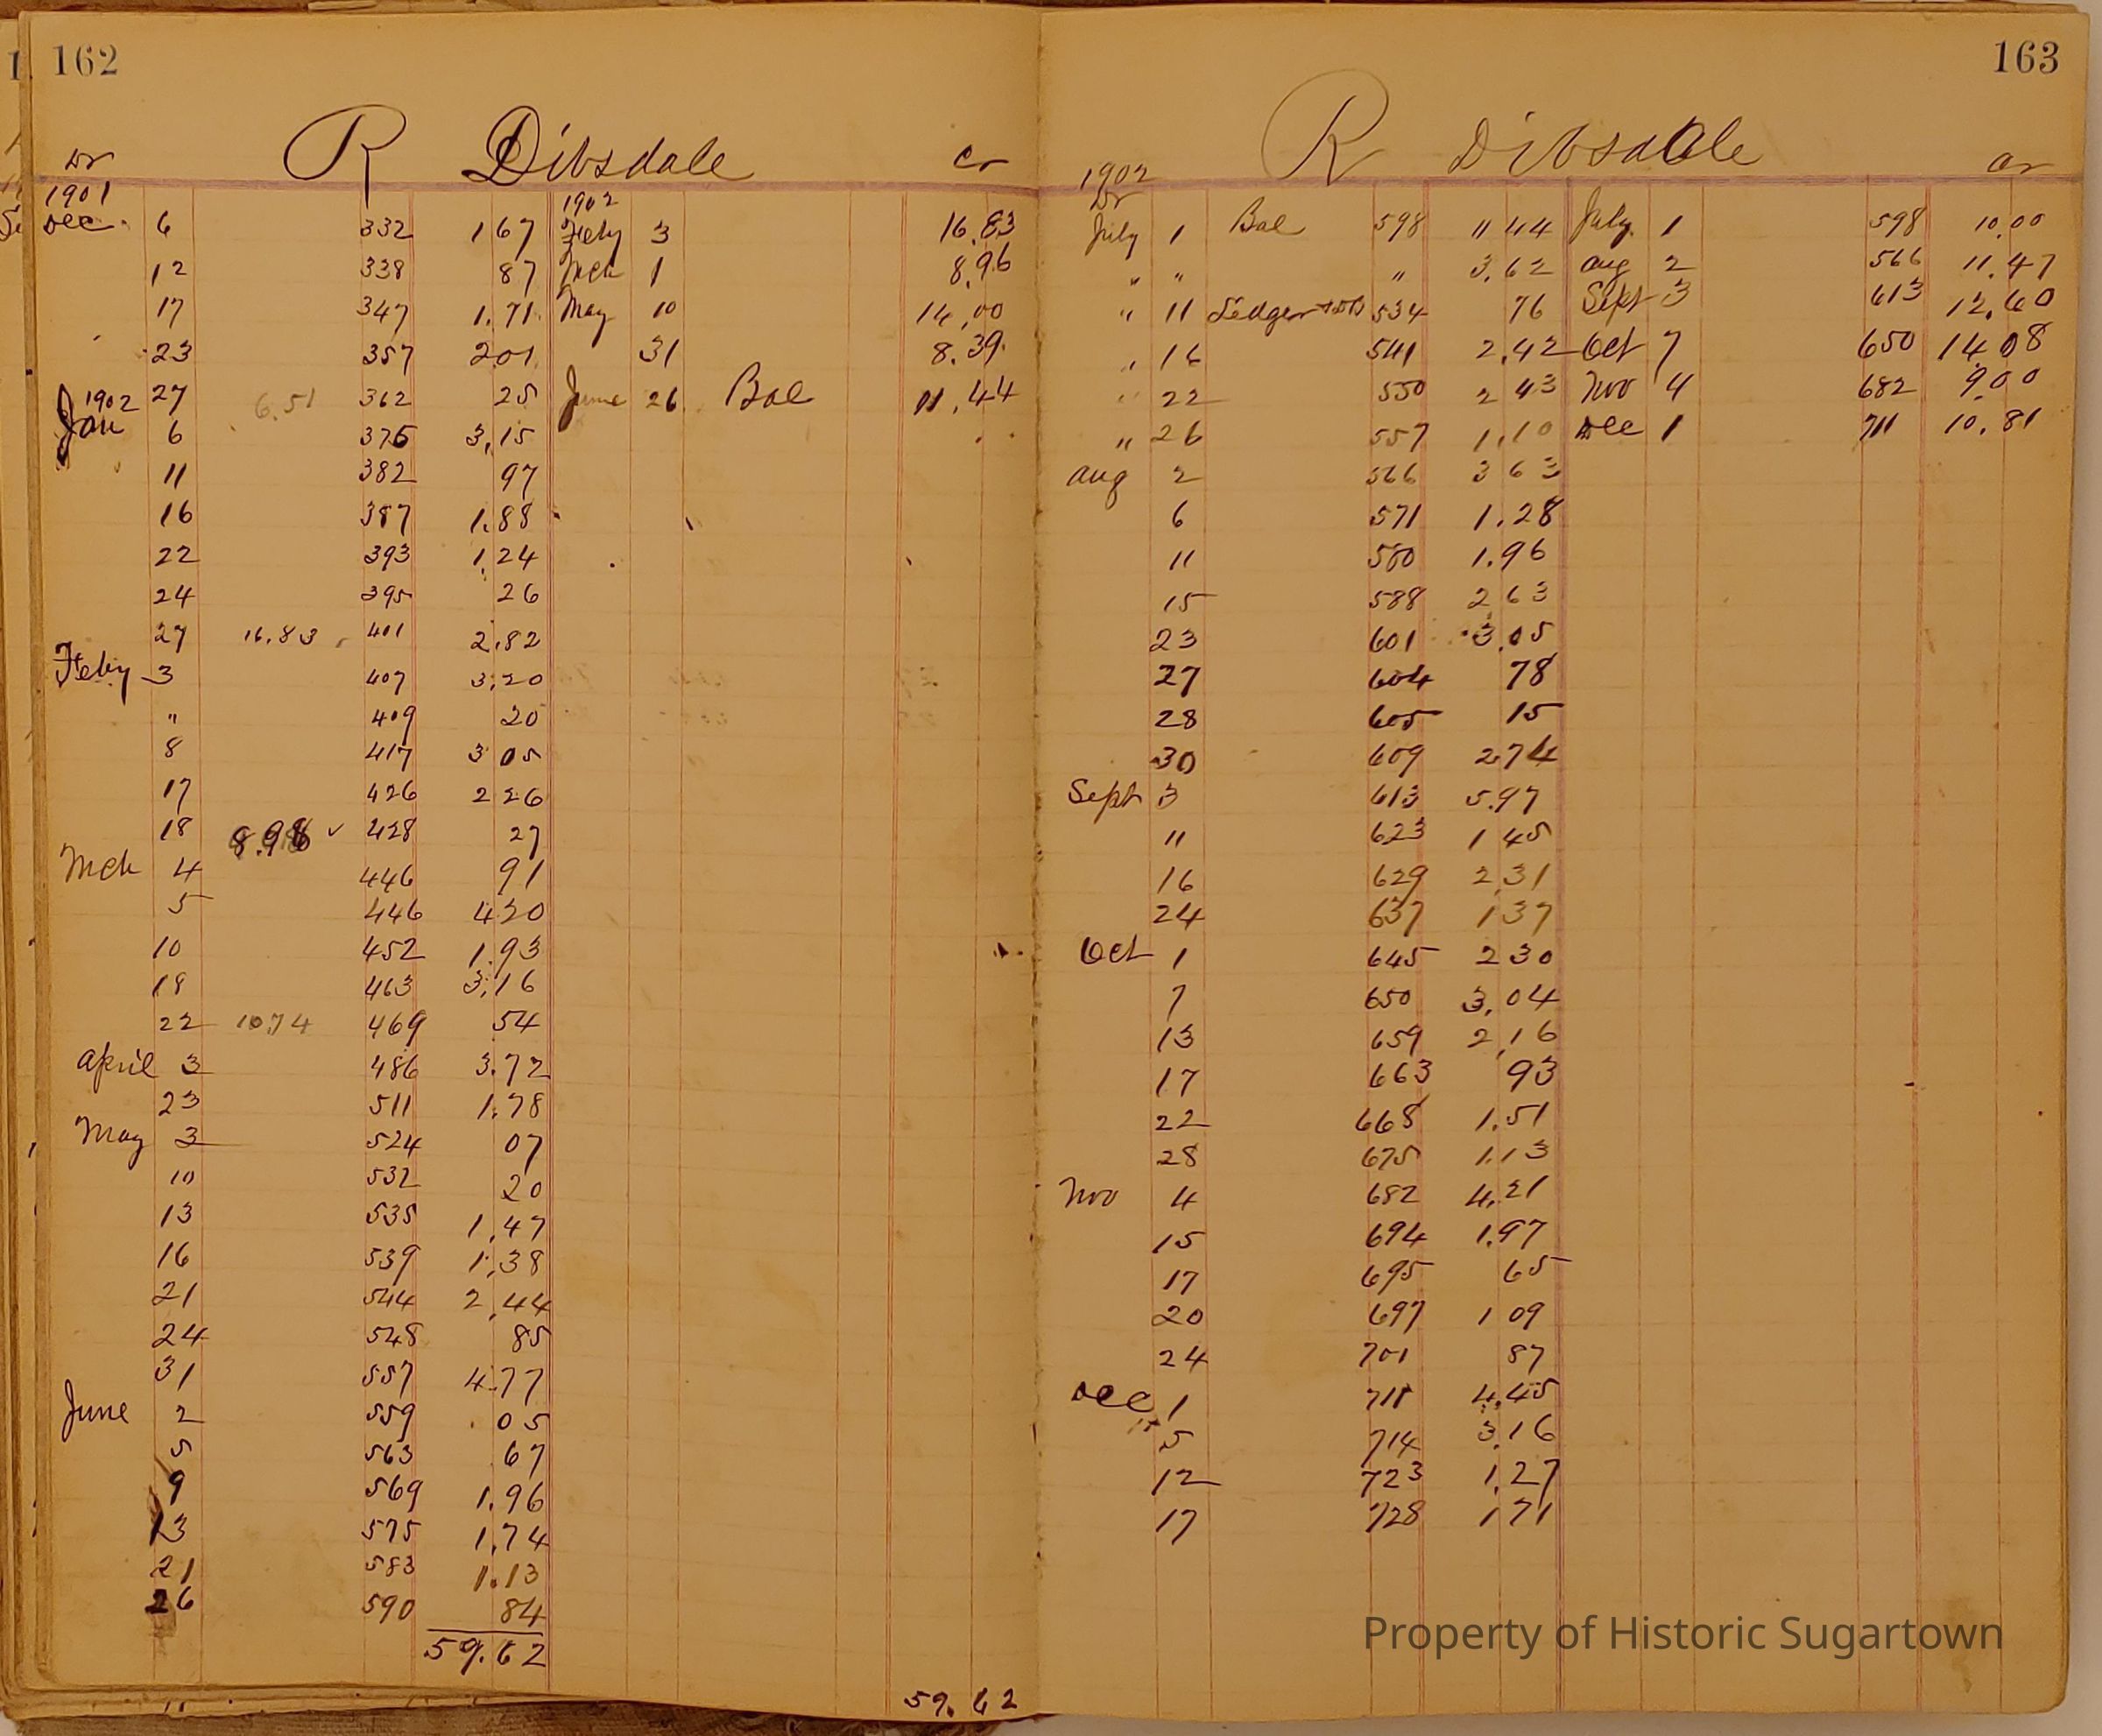 162
Dr R Dibsdale Cr
1901 1902
Dec 6 332 1 67 Feby 3 16.83
12 338 87 Mch 1 8.96
17 347 1.71 May 10 14.00
23 357 2 01 31 8.39
27 6.51 362 25 June 26 Bal 11.44
1902
Jan 6 376 3.15
11 382 97
16 387 1.88
22 393 1.24
24 395 26
27 16.83 401 2.82
Feby 3 407 3.20
" 409 20
8 417 3 05
17 426 2 26
18 8.96 428 27
Mch 4 446 91
5 446 4 20
10 452 1.93
18 463 3.16
22 10 74 469 54
April 3 486 3.72
23 511 1.78
May 3 524 07
10 532 20
13 535 1.47
16 539 1.38
21 544 2.44
24 548 85
31 557 4.77
June 2 559 05
5 563 67
9 569 1.96
13 575 1.74
21 583 1.13
26 590 84
59.62
59.62
163
1902 R Dibsdale Cr
Dr
July 1 Bal 598 11 44 July 1 598 10.00
" " " 3.62 Aug 2 566 11.47
" 11 Ledger 534 76 Sept 3 613 12.60
" 16 541 2.42 Oct 7 650 14 08
" 22 550 2 43 Nov 4 682 9.00
" 26 557 1.10 Dec 1 711 10.81
Aug 2 566 3 63
6 571 1.28
11 580 1.96
15 588 2 63
23 601 3.05
27 604 78
28 605 15
30 609 2.74
Sept 3 613 5.97
" 623 1 45
16 629 2 31
24 637 1 37
Oct 1 645 2 30
7 650 3.04
13 659 2.16
17 663 93
22 668 1.51
28 675 1.13
Nov 4 682 4.21
15 694 1.97
17 695 65
20 697 1 09
24 701 87
Dec 1 711 4.45
5 714 3.16
12 723 1.27
17 728 1 71
Property of Historic Sugartown